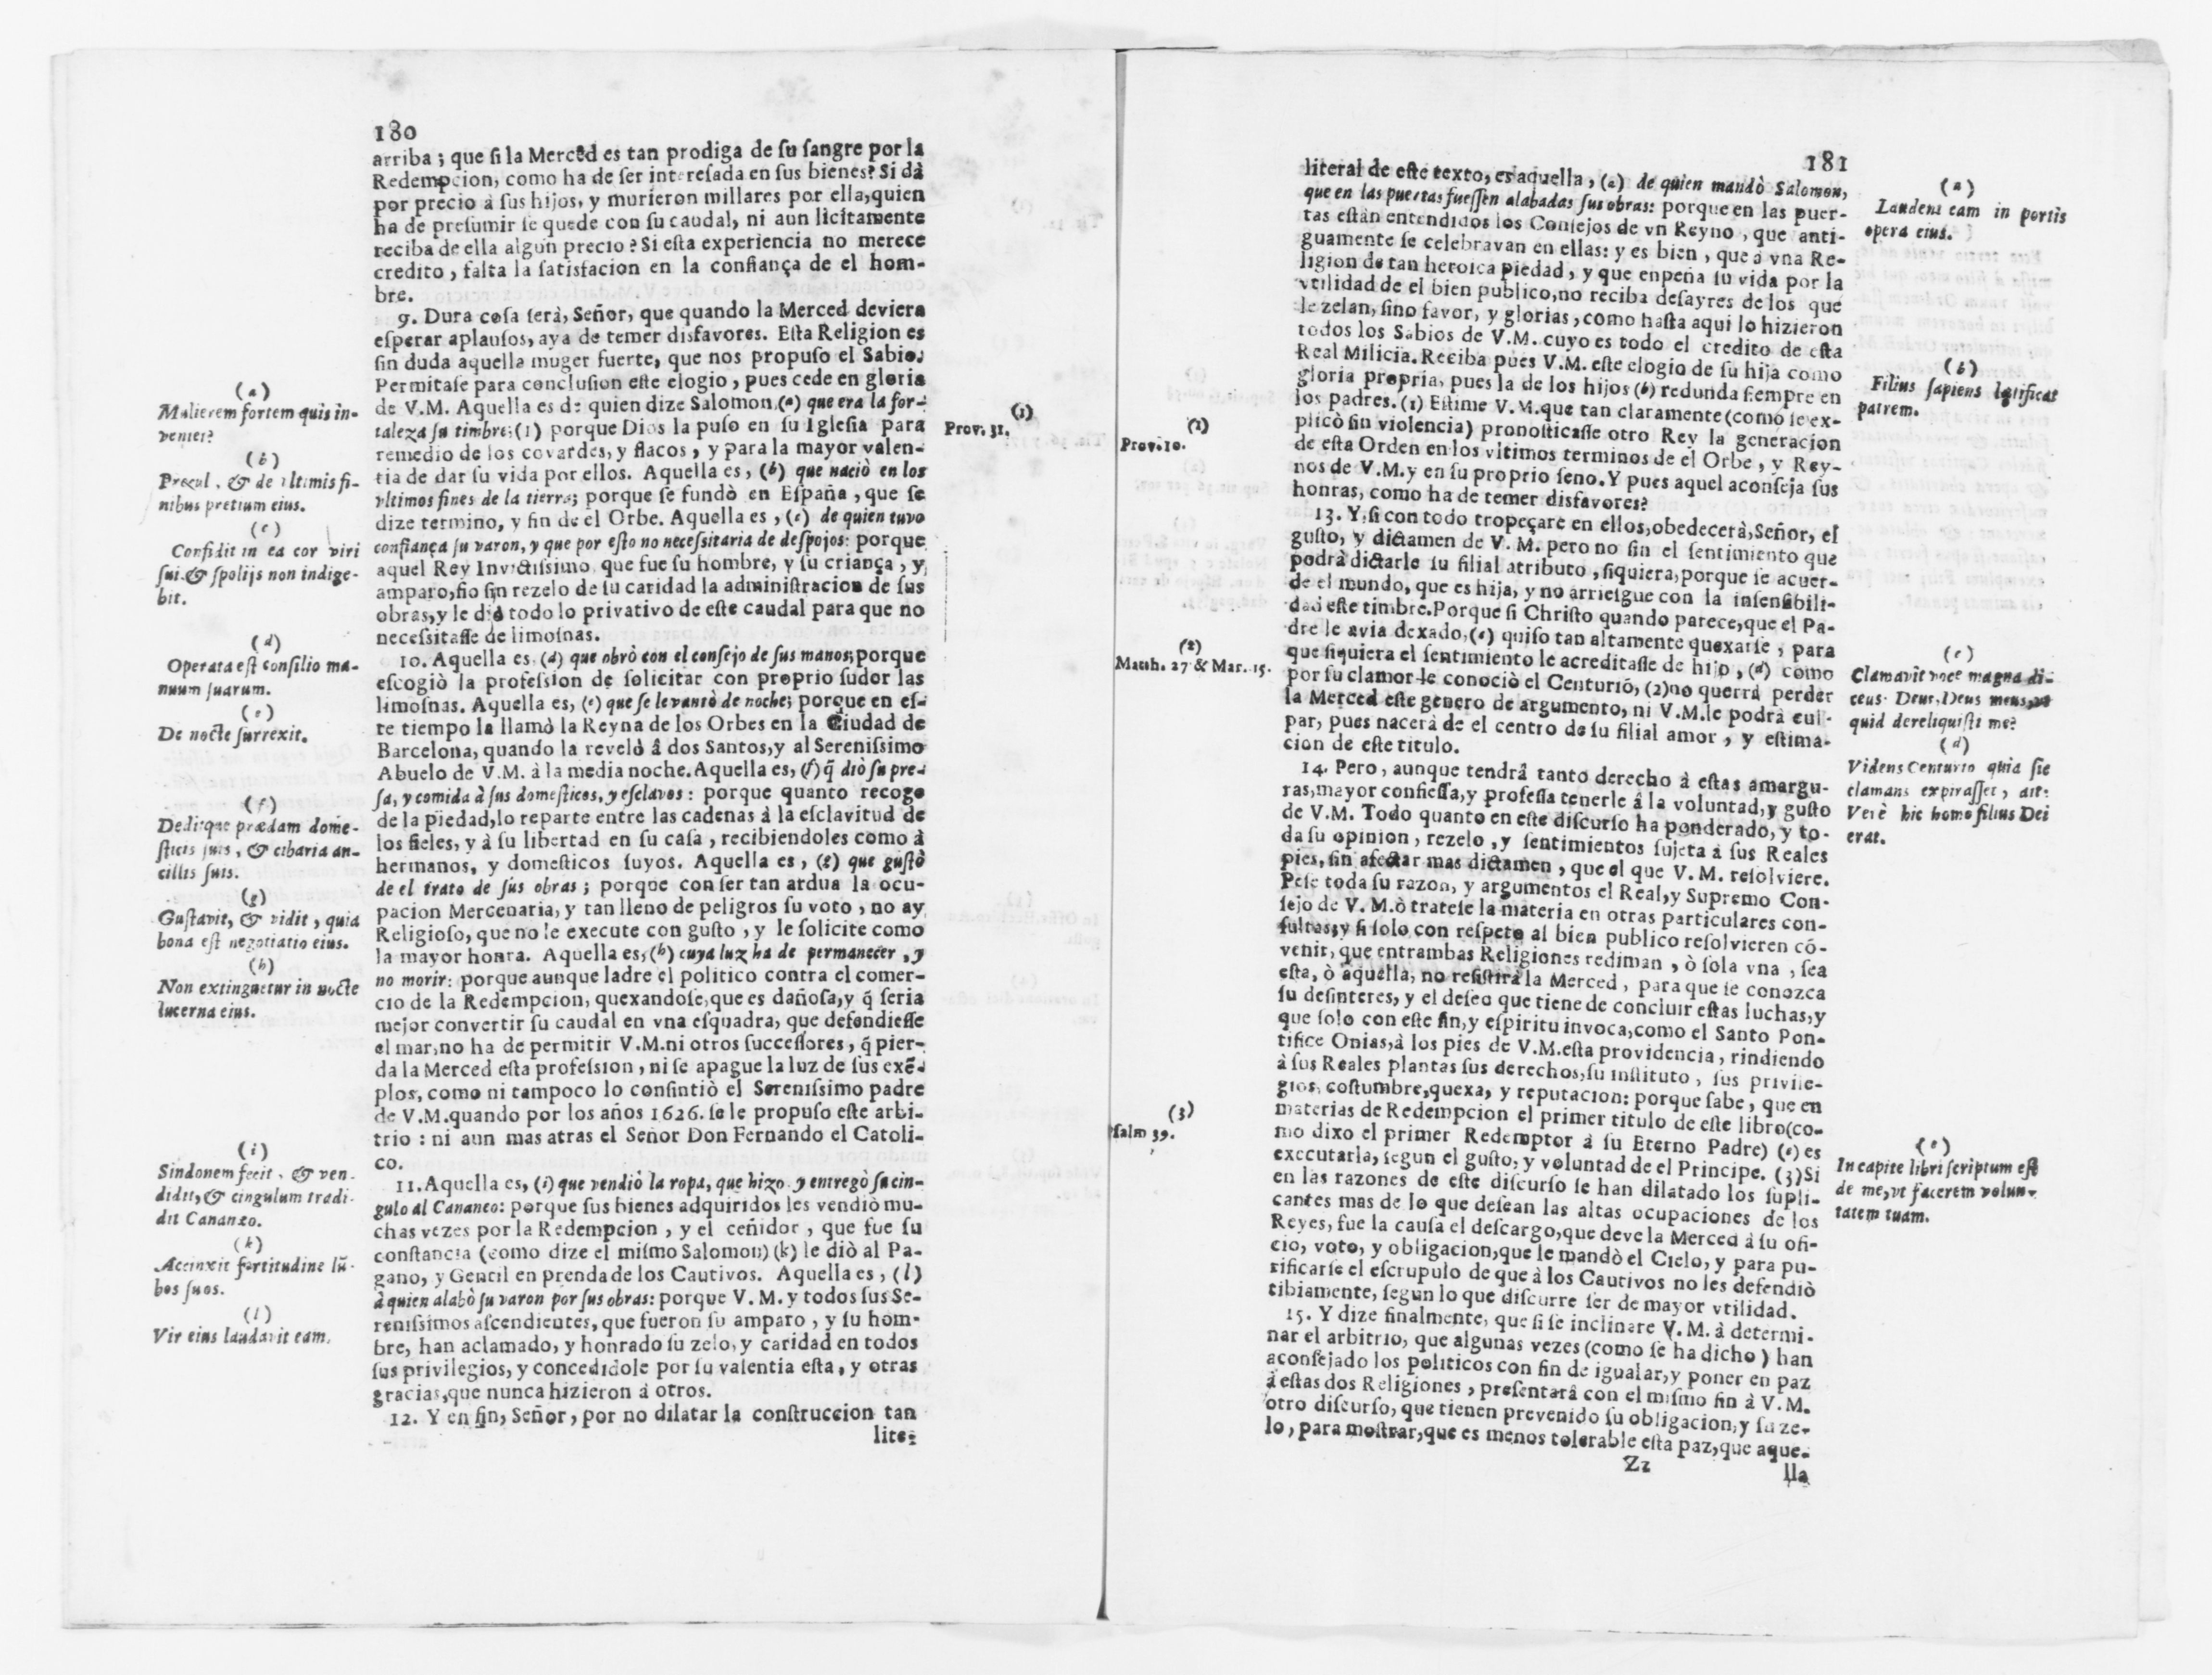 180
arriba; que ſi la Merced es tan prodiga de ſu ſangre por la
Redempcion, como ha de ſer intereſada en ſus bienes? Si dà
por precio à ſus hijos, y murieron millares por ella, quien
ha de preſumir ſe quede con ſu caudal, ni aun licitamente
reciba de ella algun precio? Si eſta experiencia no merece
credito, falta la ſatisfacion en la confiança de el hom-
bre.
9. Dura coſa ſerà, Señor, que quando la Merced deviera
eſperar aplauſos, aya de temer disfavores. Eſta Religion es
ſin duda aquella muger fuerte, que nos propuſo el Sabio.
Permitaſe para concluſion eſte elogio, pues cede en gloria
de V.M. Aquella es de quien dize Salomon (a) que era la for-
taleza ſu timbre; (1) porque Dios la puſo en ſu Igleſia para
remedio de los covardes, y flacos, y para la mayor valen-
tia de dar ſu vida por ellos. Aquella es, (b) que naciò en los
vltimos fines de la tierra; porque ſe fundò en Eſpaña, que ſe
dize termino, y fin de el Orbe. Aquella es, (c) de quien tuvo
confiança ſu varon, y que por eſto no neceſsitaria de deſpojos: porque
aquel Rey Invictiſsimo, que fue ſu hombre, y ſu criança, y
amparo, fio ſin rezelo de ſu caridad la adminiſtracion de ſus
obras, y le diò todo lo privativo de eſte caudal para que no
neceſsitaſſe de limoſnas.
10. Aquella es, (d) que obrò con el conſejo de ſus manos; porque
eſcogiò la profeſsion de ſolicitar con proprio ſudor las
limoſnas. Aquella es, (e) que ſe levantò de noche; porque en eſ-
te tiempo la llamò la Reyna de los Orbes en la Ciudad de
Barcelona, quando la revelò â dos Santos, y al Sereniſsimo
Abuelo de V.M. à la media noche. Aquella es, (f) q̃ diò ſu pre-
ſa, y comida à ſus domeſticos, y eſclavos: porque quanto recoge
de la piedad, lo reparte entre las cadenas à la eſclavitud de
los fieles, y à ſu libertad en ſu caſa, recibiendoles como à
hermanos, y domeſticos ſuyos. Aquella es, (g) que guſtò
de el trato de ſus obras; porque con ſer tan ardua la ocu-
pacion Mercenaria, y tan lleno de peligros ſu voto, no ay
Religioſo, que no le execute con guſto, y le ſolicite como
la mayor honra. Aquella es, (h) cuya luz ha de permanecer, y
no morir: porque aunque ladre el politico contra el comer-
cio de la Redempcion, quexandoſe, que es dañoſa, y q̃ ſeria
mejor convertir ſu caudal en vna eſquadra, que defendieſſe
el mar, no ha de permitir V.M. ni otros ſucceſſores, q̃ pier-
da la Merced eſta profeſsion, ni ſe apague la luz de ſus exẽ-
plos, como ni tampoco lo conſintiò el Sereniſsimo padre
de V.M. quando por los años 1626. ſe le propuſo eſte arbi-
trio: ni aun mas atras el Señor Don Fernando el Catoli-
co.
11. Aquella es, (i) que vendiò la ropa, que hizo y entregò ſu cin-
gulo al Cananeo: porque ſus bienes adquiridos les vendiò mu-
chas vezes por la Redempcion, y el ceñidor, que fue ſu
conſtancia (como dize el miſmo Salomon) (k) le diò al Pa-
gano, y Gentil en prenda de los Cautivos. Aquella es, (l)
à quien alabò ſu varon por ſus obras: porque V. M. y todos ſus Se-
reniſsimos aſcendientes, que fueron ſu amparo, y ſu hom-
bre, han aclamado, y honrado ſu zelo, y caridad en todos
ſus privilegios, y concedidole por ſu valentia eſta, y otras
gracias, que nunca hizieron à otros.
12. Y en fin, Señor, por no dilatar la conſtruccion tan
lite-
(a)
Mulierem fortem quis in-
veniet?
(b)
Procul, & de vltimis fi-
nibus pretium eius.
(c)
Confidit in ea cor viri
ſui, & ſpolijs non indige-
bit.
(d)
Operata eſt conſilio ma-
nuum ſuarum.
(e)
De nocte ſurrexit.
(f)
Deditque prædam dome-
ſticis ſuis, & cibaria an-
cillis ſuis.
(g)
Guſtavit, & vidit, quia
bona eſt negotiatio eius.
(h)
Non extinguetur in nocte
lucerna eius.
(i)
Sindonem fecit, & ven-
didit, & cingulum tradi-
dit Cananæo.
(k)
Accinxit fortitudine lũ-
bos ſuos.
(l)
Vir eius laudavit eam.
(1)
Prov. 31.
181
literal de eſte texto, es aquella, (a) de quien mandò Salomon,
que en las puertas fueſſen alabadas ſus obras: porque en las puer-
tas eſtàn entendidos los Conſejos de vn Reyno, que anti-
guamente ſe celebravan en ellas: y es bien, que à vna Re-
ligion de tan heroica piedad, y que enpeña ſu vida por la
vtilidad de el bien publico, no reciba deſayres de los que
le zelan, ſino favor, y glorias, como haſta aqui lo hizieron
todos los Sabios de V.M. cuyo es todo el credito de eſta
Real Milicia. Reciba pues V.M. eſte elogio de ſu hija como
gloria propria, pues la de los hijos (b) redunda ſiempre en
los padres. (1) Eſtime V.M. que tan claramente (como ſe ex-
plicò ſin violencia) pronoſticaſſe otro Rey la generacion
de eſta Orden en los vltimos terminos de el Orbe, y Rey-
nos de V.M. y en ſu proprio ſeno. Y pues aquel aconſeja ſus
honras, como ha de temer disfavores?
13. Y ſi con todo tropeçare en ellos, obedecerà, Señor, el
guſto, y dictamen de V. M. pero no ſin el ſentimiento que
podrà dictarle ſu filial atributo, ſiquiera, porque ſe acuer-
de el mundo, que es hija, y no arrieſgue con la inſenſibili-
dad eſte timbre. Porque ſi Chriſto quando parece, que el Pa-
dre le avia dexado, (c) quiſo tan altamente quexarſe, para
que ſiquiera el ſentimiento le acreditaſſe de hijo, (d) como
por ſu clamor le conociò el Centuriõ, (2) no querrà perder
la Merced eſte genero de argumento, ni V.M. le podrà cul-
par, pues nacerà de el centro de ſu filial amor, y eſtima-
cion de eſte titulo.
14. Pero, aunque tendrâ tanto derecho à eſtas amargu-
ras, mayor confieſſa, y profeſſa tenerle â la voluntad, y guſto
de V.M. Todo quanto en eſte diſcurſo ha ponderado, y to-
da ſu opinion, rezelo, y ſentimientos ſujeta à ſus Reales
pies, ſin afectar mas dictamen, que el que V.M. reſolviere.
Peſe toda ſu razon, y argumentos el Real, y Supremo Con-
ſejo de V. M. ò trateſe la materia en otras particulares con-
ſultas, y ſi ſolo con reſpeto al bien publico reſolvieren cõ-
venir, que entrambas Religiones rediman, ò ſola vna, ſea
eſta, ò aquella, no reſiſtirà la Merced, para que ſe conozca
ſu deſinteres, y el deſeo que tiene de concluir eſtas luchas, y
que ſolo con eſte fin, y eſpiritu invoca, como el Santo Pon-
tifice Onias, à los pies de V.M. eſta providencia, rindiendo
à ſus Reales plantas ſus derechos, ſu inſtituto, ſus privile-
gios, coſtumbre, quexa, y reputacion: porque ſabe, que en
materias de Redempcion el primer titulo de eſte libro (co-
mo dixo el primer Redemptor à ſu Eterno Padre) (e) es
executarla, ſegun el guſto, y voluntad de el Principe. (3) Si
en las razones de eſte diſcurſo ſe han dilatado los ſupli-
cantes mas de lo que deſean las altas ocupaciones de los
Reyes, fue la cauſa el deſcargo, que deve la Merced à ſu ofi-
cio, voto, y obligacion, que le mandò el Cielo, y para pu-
rificarſe el eſcrupulo de que à los Cautivos no les defendiò
tibiamente, ſegun lo que diſcurre ſer de mayor vtilidad.
15. Y dize finalmente, que ſi ſe inclinare V.M. à determi-
nar el arbitrio, que algunas vezes (como ſe ha dicho) han
aconſejado los politicos con fin de igualar, y poner en paz
à eſtas dos Religiones, preſentarâ con el miſmo fin à V.M.
otro diſcurſo, que tienen prevenido ſu obligacion, y ſu ze-
lo, para moſtrar, que es menos tolerable eſta paz, que aque-
Zz
lla
(1)
Prov. 10.
(2)
Matth. 27 & Mar. 15.
(3)
Pſalm 39.
(a)
Laudent eam in portis
opera eius.
(b)
Filius ſapiens lætificat
patrem.
(c)
Clamavit voce magna di-
cens: Deus, Deus meus, vt
quid dereliquiſti me?
(d)
Videns Centurio quia ſic
clamans expiraſſet, ait:
Verè hic homo filius Dei
erat.
(e)
In capite libri ſcriptum eſt
de me, vt facerem volun-
tatem tuam.